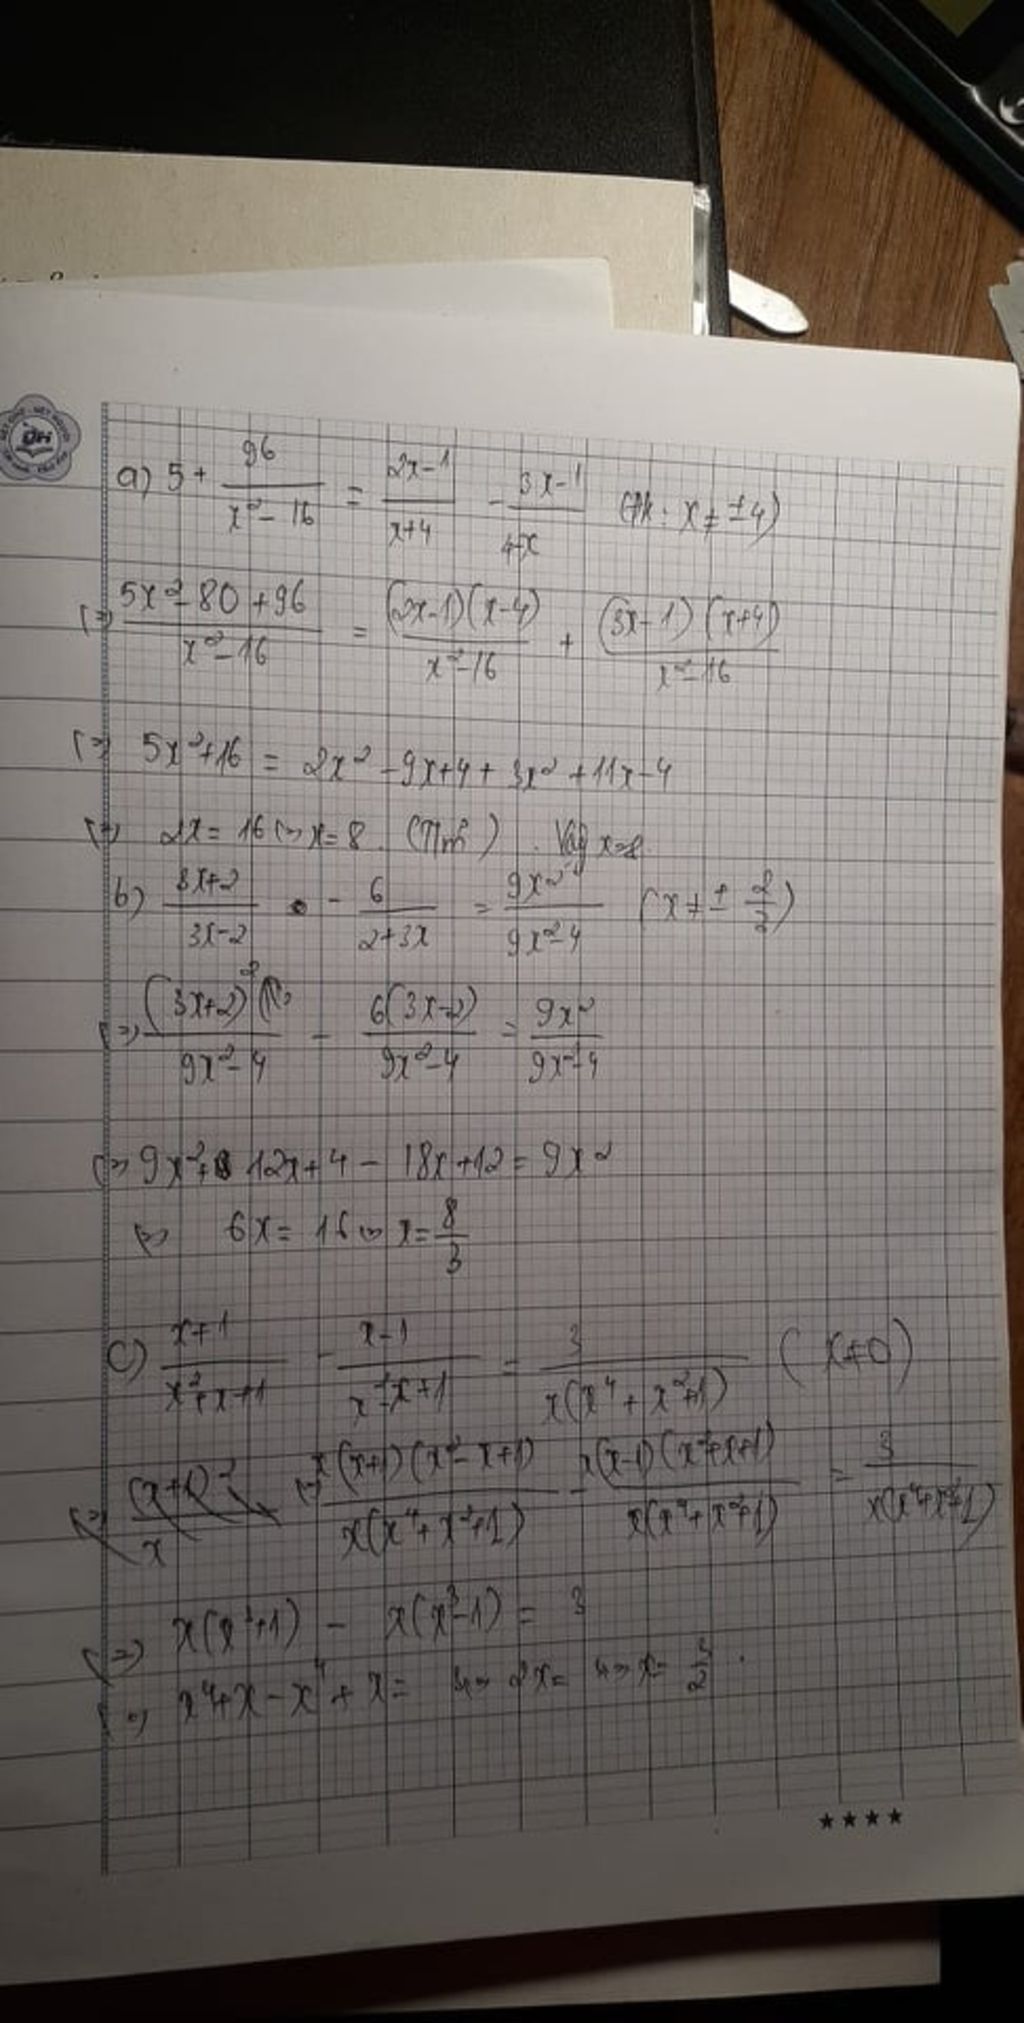 a) 5 + 96/(x² - 16) = (2x-1)/(x+4) - (3x-1)/(4-x) (đk: x ≠ ±4)
(=) (5x² - 80 + 96)/(x² - 16) = (2x-1)(x-4)/(x² - 16) + (3x-1)(x+4)/(x² - 16)
(=) 5x² + 16 = 2x² - 9x + 4 + 3x² + 11x - 4
(=) 2x = 16 (=) x = 8. (Tm). Vậy x = 8
b) (3x+2)/(3x-2) - 6/(2+3x) = 9x²/(9x² - 4) (x ≠ ± 2/3)
(=) (3x+2)²/(9x² - 4) - 6(3x-2)/(9x² - 4) = 9x²/(9x² - 4)
(=) 9x² + 12x + 4 - 18x + 12 = 9x²
(=) 6x = 16 (=) x = 8/3
c) (x+1)/(x² + x + 1) - (x-1)/(x² - x + 1) = 3/x(x⁴ + x² + 1) (x ≠ 0)
(=) x(x+1)(x² - x + 1)/x(x⁴ + x² + 1) - x(x-1)(x² + x + 1)/x(x⁴ + x² + 1) = 3/x(x⁴ + x² + 1)
(=) x(x³ + 1) - x(x³ - 1) = 3
(=) x⁴ + x - x⁴ + x = 3 (=) 2x = 3 (=) x = 3/2.